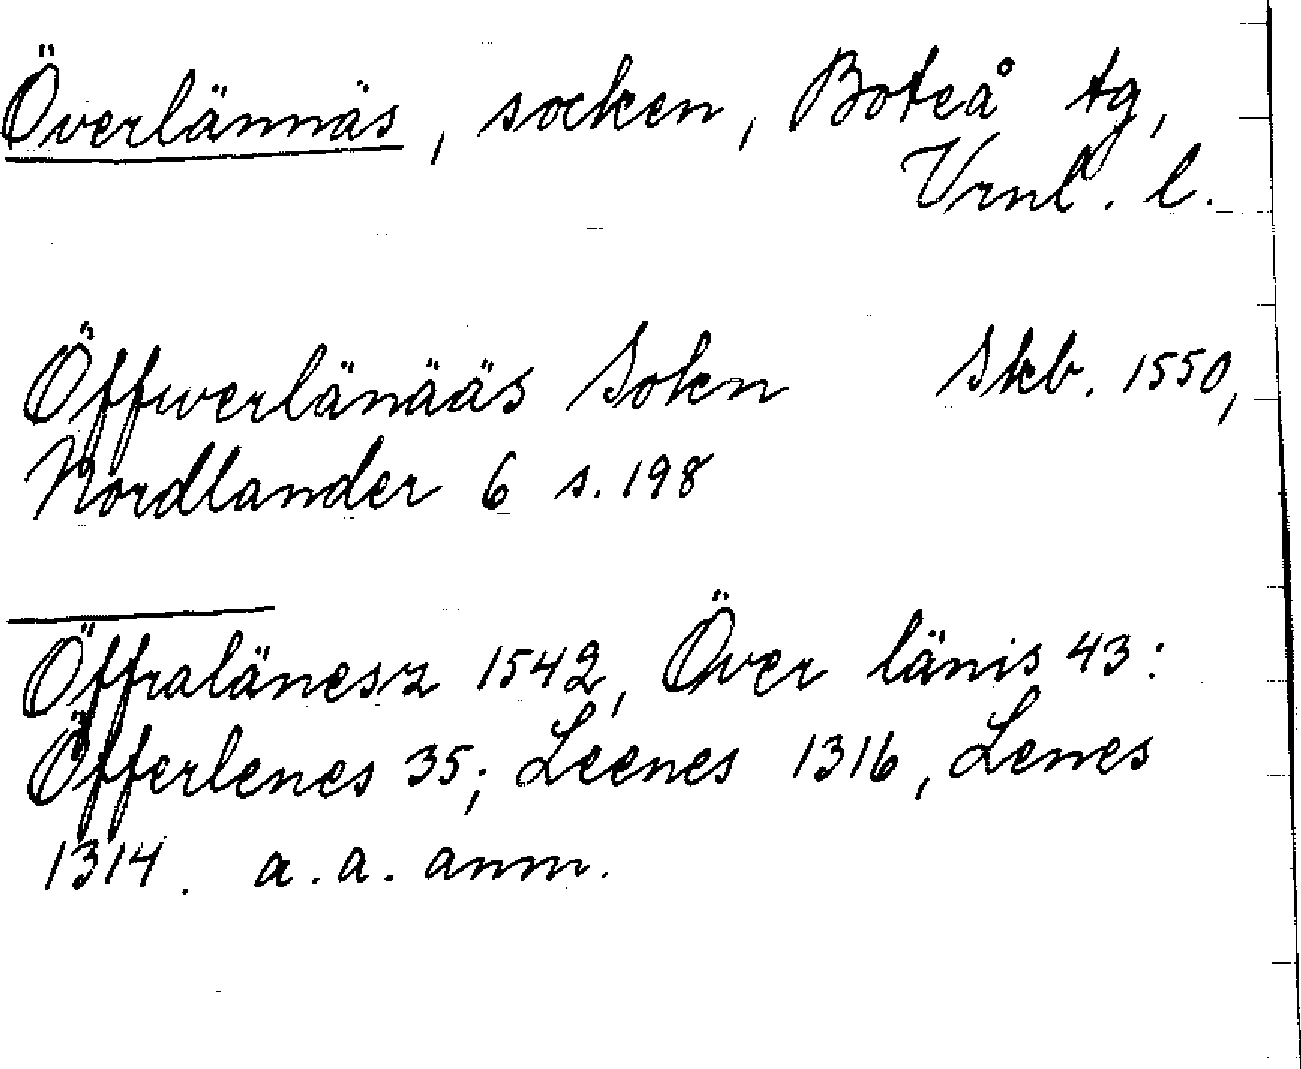 Överlännäs, socken, Boteå tg,
Vrnl. l.
Öffwerlänääs Sokn Skb. 1550,
Nordlander 6 s. 198
Öffralänesz 1542, Över länis 43:
Öfferlenes 35; Leenes 1316, Lenes
1314. a. a. anm.